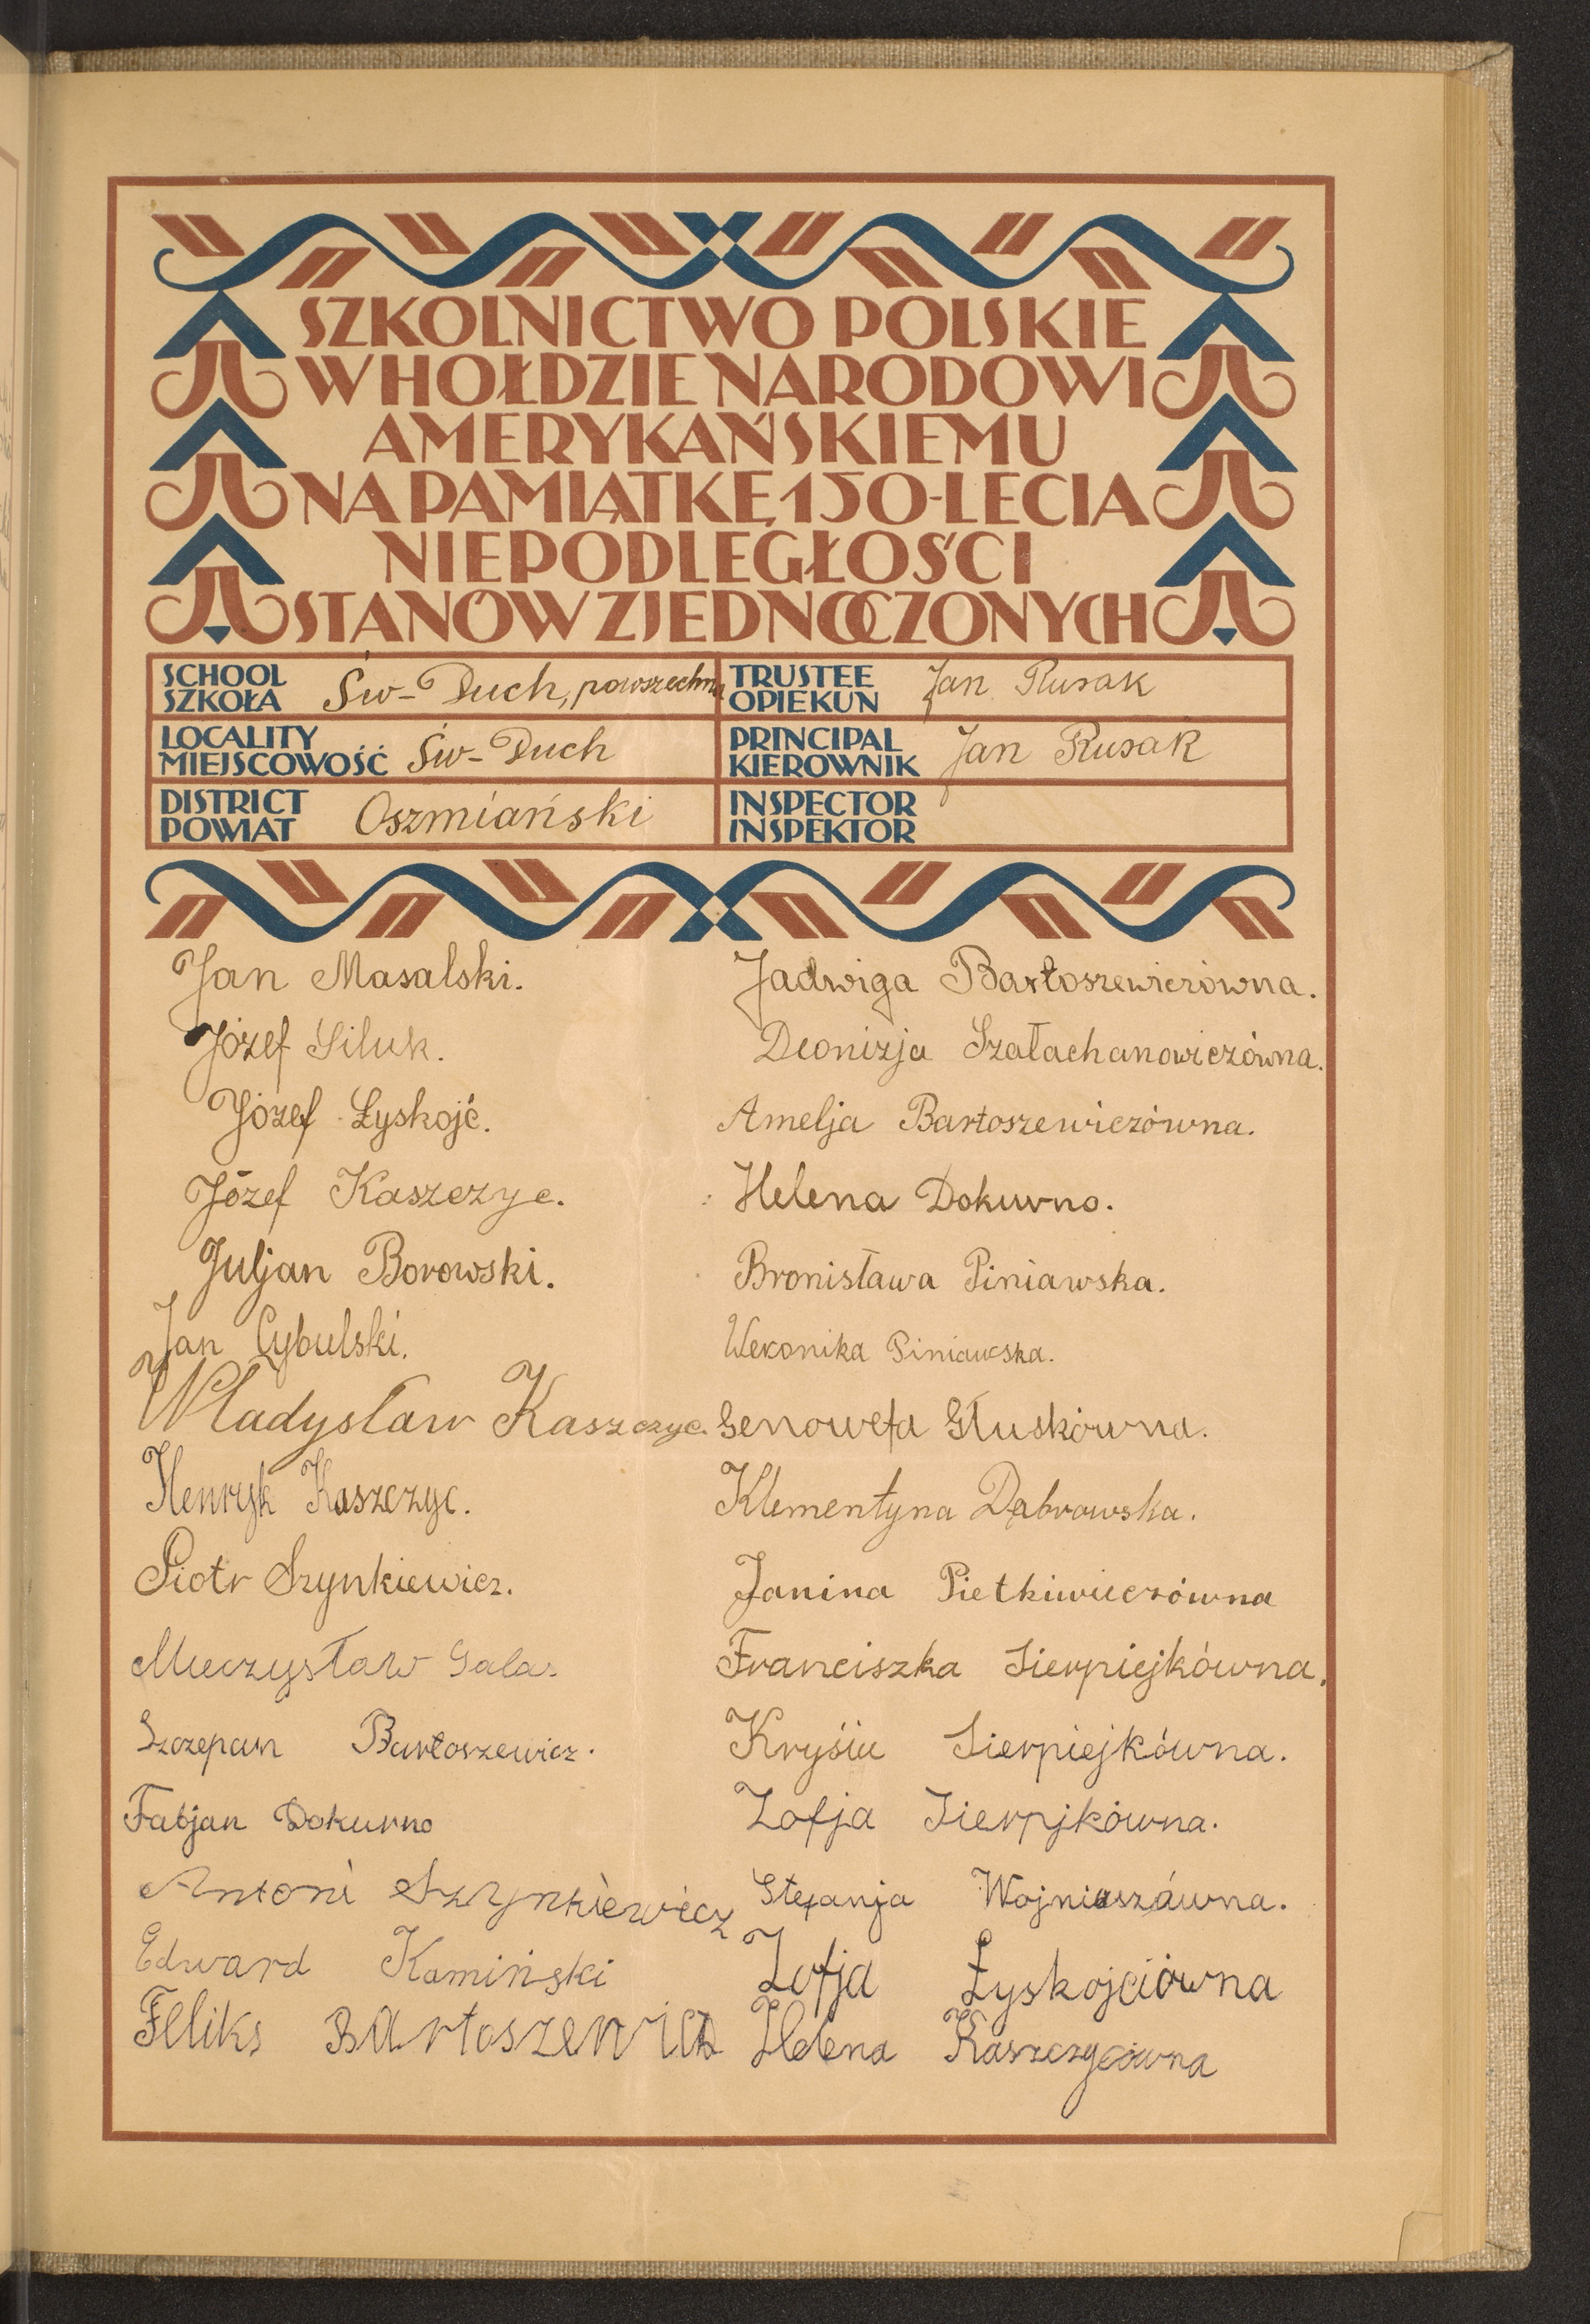 SZKOLNICTWO POLSKIE
W HOŁDZIE NARODOWI
AMERYKAŃSKIEMU
NA PAMIĄTKĘ 150-LECIA
NIEPODLEGŁOŚCI
STANÓW ZJEDNOCZONYCH
SCHOOL
SZKOŁA
Św-Duch, powszechna
TRUSTEE
OPIEKUN
Jan Rusak
LOCALITY
MIEJSCOWOŚĆ
Św-Duch
PRINCIPAL
KIEROWNIK
Jan Rusak
DISTRICT
POWIAT
Oszmiański
INSPECTOR
INSPEKTOR
Jan Masalski.
Józef Siluk.
Józef Łyskojć.
Józef Kaszczyc.
Juljan Borowski.
Jan Cybulski.
Władysław Kaszczyc.
Henryk Kaszczyc.
Piotr Szynkiewicz.
Mieczysław Galas.
Szczepan Bartoszewicz.
Fabjan Dokurno
Antoni Szynkiewicz
Edward Kamiński
Feliks Bartoszewicz
Jadwiga Bartoszewiczówna.
Deonizja Szałachanowiczówna.
Amelja Bartoszewiczówna.
Helena Dokurno.
Bronisława Piniawska.
Weronika Piniawska.
Genowefa Głuskówna.
Klementyna Dąbrowska.
Janina Pietkiwiczówna
Franciszka Sierpiejkówna.
Krysia Sierpiejkówna.
Zofja Sierpjkówna.
Stefanja Wojniuszówna.
Zofja Łyskojciówna
Helena Kaszczycówna